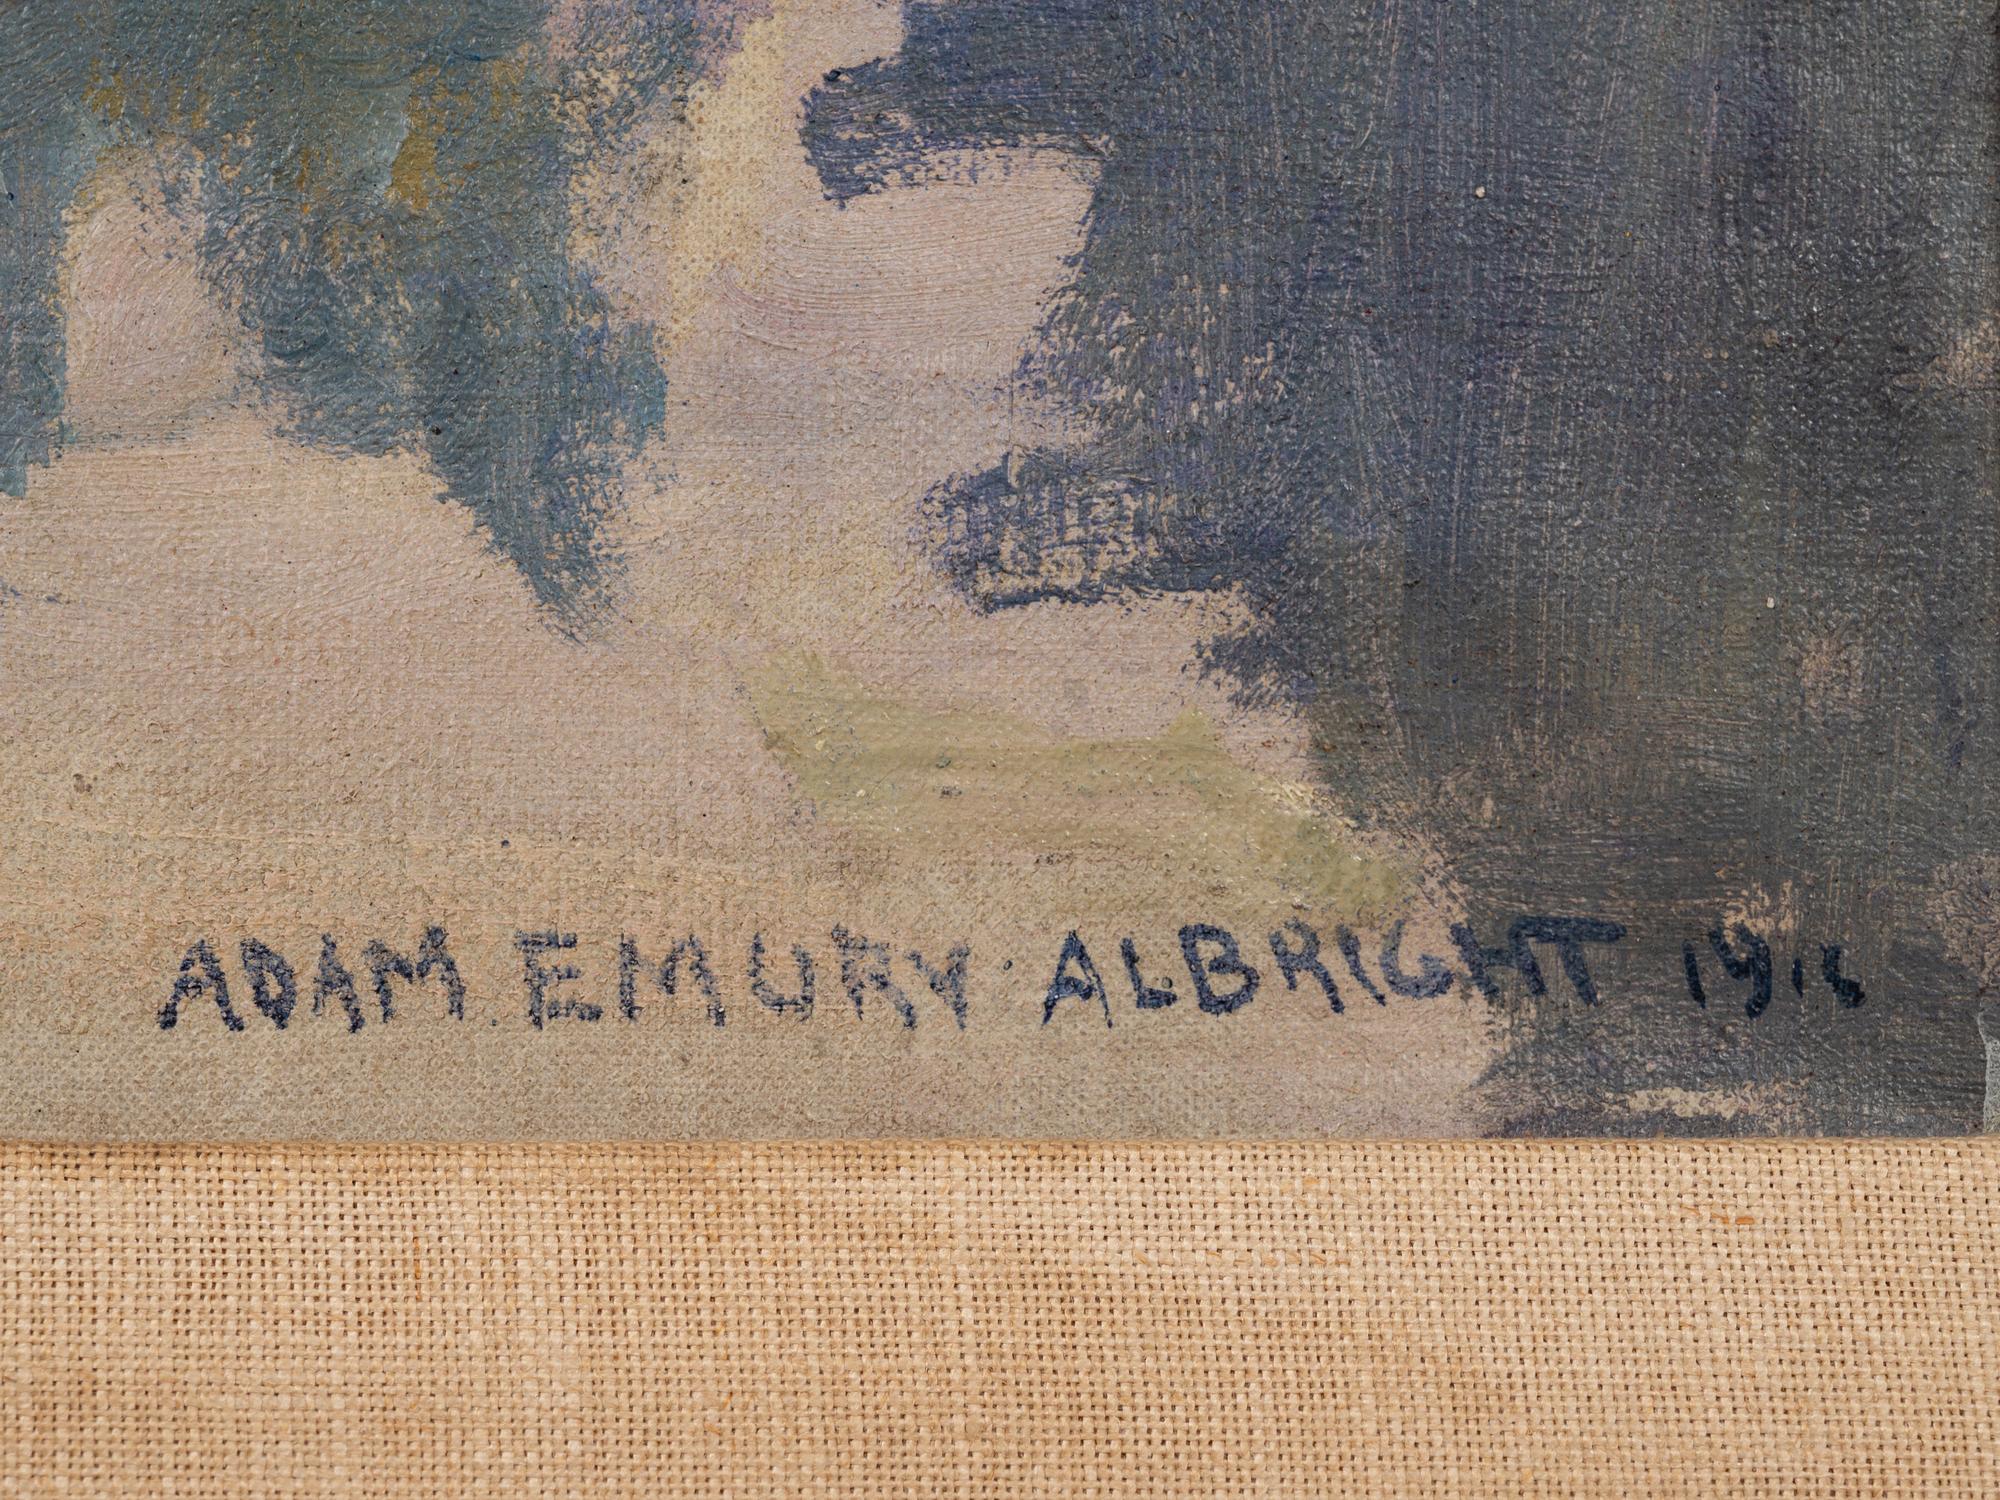 ADAM EMORY ALBRIGHT 1916